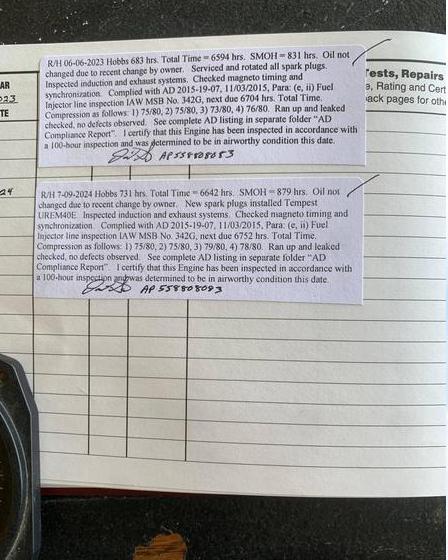 R/H 06-06-2023 Hobbs 683 hrs. Total Time = 6594 hrs. SMOH = 831 hrs. Oil not
changed due to recent change by owner. Serviced and rotated all spark plugs.
Inspected induction and exhaust systems. Checked magneto timing and
synchronization. Complied with AD 2015-19-07, 11/03/2015, Para: (e, ii) Fuel
Injector line inspection IAW MSB No. 342G, next due 6704 hrs. Total Time.
Compression as follows: 1) 75/80, 2) 75/80, 3) 73/80, 4) 76/80. Ran up and leaked
checked, no defects observed. See complete AD listing in separate folder "AD
Compliance Report". I certify that this Engine has been inspected in accordance with
a 100-hour inspection and was determined to be in airworthy condition this date.
AP558808083
Tests, Repairs
e, Rating and Cert
ack pages for othe
AR
TE
24
R/H 7-09-2024 Hobbs 731 hrs. Total Time = 6642 hrs. SMOH = 879 hrs. Oil not
changed due to recent change by owner. New spark plugs installed Tempest
UREM40E Inspected induction and exhaust systems. Checked magneto timing and
synchronization. Complied with AD 2015-19-07, 11/03/2015, Para: (e, ii) Fuel
Injector line inspection IAW MSB No. 342G, next due 6752 hrs. Total Time.
Compression as follows: 1) 75/80, 2) 75/80, 3) 79/80, 4) 78/80. Ran up and leaked
checked, no defects observed. See complete AD listing in separate folder "AD
Compliance Report". I certify that this Engine has been inspected in accordance with
a 100-hour inspection and was determined to be in airworthy condition this date.
AP 558808083